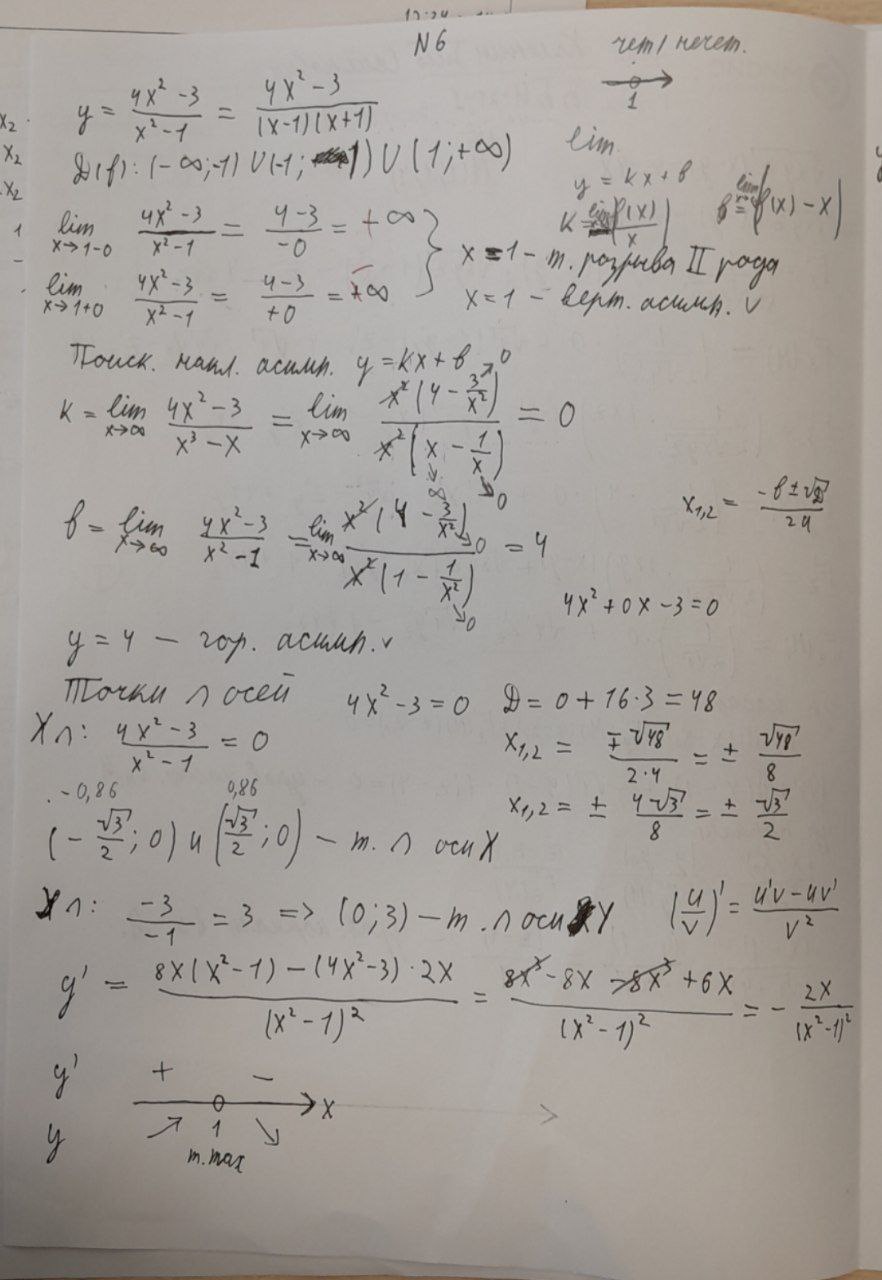 N6
чет/нечет.
1
y = (4x² - 3)/(x² - 1) = (4x² - 3)/((x-1)(x+1))
D(f): (-∞;-1) ∪ (-1; 1) ∪ (1;+∞)
lim
y = kx + b
k = lim f(x)/x
b = lim f(x) - x
lim x→1-0 (4x²-3)/(x²-1) = (4-3)/-0 = ∞
lim x→1+0 (4x²-3)/(x²-1) = (4-3)/+0 = ∞
x = 1 - т. разрыва II рода
x = 1 - верт. асимп. v
Поиск. накл. асимп. y = kx + b
k = lim x→∞ (4x² - 3)/(x³ - x) = lim x→∞ x²(4 - 3/x²)→0 / x²(x - 1/x) = 0
∞ 0
b = lim x→∞ (4x²-3)/(x²-1) = lim x→∞ x²(4 - 3/x²)→0 / x²(1 - 1/x²)→0 = 4
x₁,₂ = (-b ± √D)/2a
4x² + 0x - 3 = 0
y = 4 - гор. асимп. v
Точки ∩ осей 4x² - 3 = 0 D = 0 + 16·3 = 48
X∩: (4x² - 3)/(x² - 1) = 0
x₁,₂ = ∓√48/(2·4) = ± √48/8
x₁,₂ = ± 4√3/8 = ± √3/2
-0,86 0,86
(-√3/2; 0) и (√3/2; 0) - т. ∩ оси X
Y∩: -3/-1 = 3 => (0;3) - т. ∩ оси Y
(u/v)' = (u'v - uv')/v²
y' = (8x(x²-1) - (4x²-3)·2x)/(x²-1)² = (8x³ - 8x - 8x³ + 6x)/(x²-1)² = - 2x/(x²-1)²
y' + - x
y 1
т. max